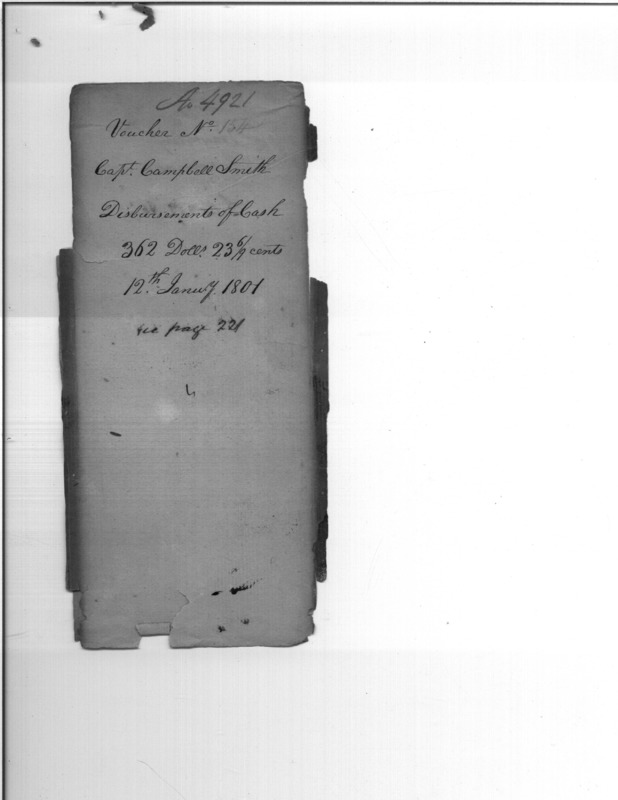 A. 4921
Voucher No. 134
Capt. Campbell Smith
Disbursements of Cash
362 Dolls. 23 6/9 cents
12th. Januy. 1801
see page 221